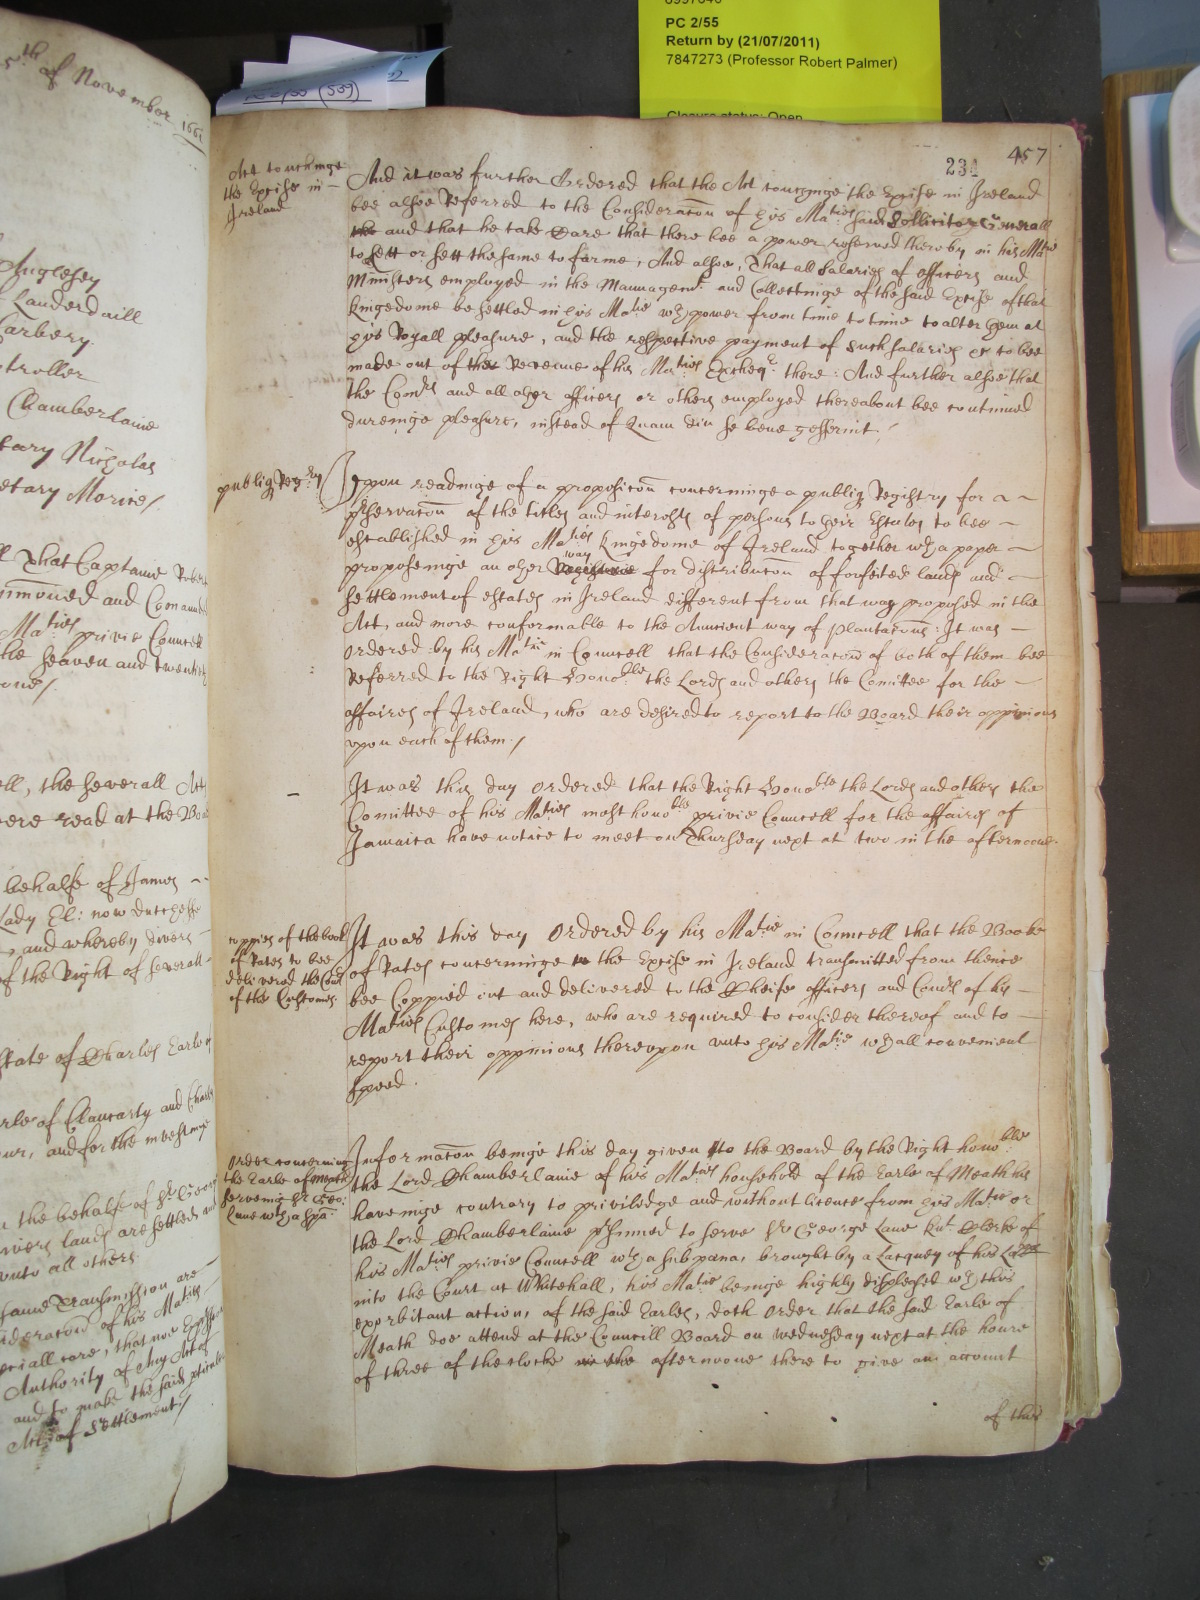 PC 2/55
Return by (21/07/2011)
7847273 (Professor Robert Palmer)
Closure status: Open
5th of November 1661
Anglesey
Lauderdaill
Carbery
troller
Chamberlaine
tary Nicholas
etary Morice/
ll That Captaine Robert
mmoned and Comaund
Maties privie Councell
the seaven and twentie
ell, the severall Acts
ere read at the Boa
behalfe of James
Lady El: now Dutchesse
and whereby divers
of the Right of severall
state of Charles Earle of
rle of Clancarty and Charles
our, and for the investinge
n the behalfe of Sr Georg
landes are settled
unto all others
same Transmission are
ideracon of his Maties
peciall care, that noe
Authority of Any Act of
and to make the said
Act of Settlement/
457
234
Act touchinge
the Excise in
Ireland
And it was further Ordered that the Act touchinge the Excise in Ireland
bee alsoe Referred to the Consideracon of his Maties said Sollicitor Generall
the and that he take Care that there bee a power reserved thereby in his Matie
to sett or lett the same to farme, And alsoe, That all Salaries of officers and
Ministers employed in the Mannagemt and Collectinge of the said Excise of that
kingedome be settled in his Matie wth power from time to time to alter them at
his Royall pleasure, and the respective payment of such salaries to bee
made out of the Revenue of his Maties Excheqr there: And further alsoe that
the Comrs and all other officers or others employed thereabout bee continued
dureinge pleasure, instead of Quam diu se bene gesserint/
publiq Regestry
Upon readinge of a proposicon concerninge a publiq Registry for
pservacon of the titles and interests of persons to their Estates to bee
established in his Maties kingedome of Ireland together wth a paper
way
proposeinge an other for distribucon of forfeited lands and
settlement of estates in Ireland different from that way proposed in the
Act, and more conformable to the Auncient way of plantacons: It was
ordered by his Matie in Councell that the Consideracon of both of them bee
Referred to the Right Honoble the Lords and others the Comittee for the
affaires of Ireland, who are desired to report to the Board their oppinions
upon each of them/
It was this day ordered that the Right Honoble the Lords and others the
Comittee of his Maties most honoble privie Councell for the affaires of
Jamaica have notice to meet on Thursday next at two in the afternoone
coppies of the book
of Rates to bee
delivered the Comrs
of the Customes
It was this day Ordered by his Matie in Councell that the Booke
of Rates concerninge to the Excise in Ireland transmitted from thence
bee Coppied out and delivered to the Cheife officers and Comrs of his
Maties Customes here, who are required to consider thereof and to
report their oppinions thereupon unto his Matie wth all convenient
speed.
Order concerning
the Earle of Meath
serveinge Sr Geo:
Lane wth a Spa
Informacon beinge this day given to the Board by the Right honoble
the Lord Chamberlaine of his Maties household of the Earle of Meath his
haveinge contrary to priviledge and without licence from his Matie or
the Lord Chamberlaine psumed to serve Sr George Lane Knt Clerke of
his Maties privie Councell wth a subpana, brought by a Lacquey of his
into the Court at Whitehall, his Matie beinge highly displesed wth this
exorbitant action, of the said Earles, doth Order that the said Earle of
Meath doe attend at the Councill Board on wednesday next at the houre
of three of the clocke in the afternoone there to give an account
of this